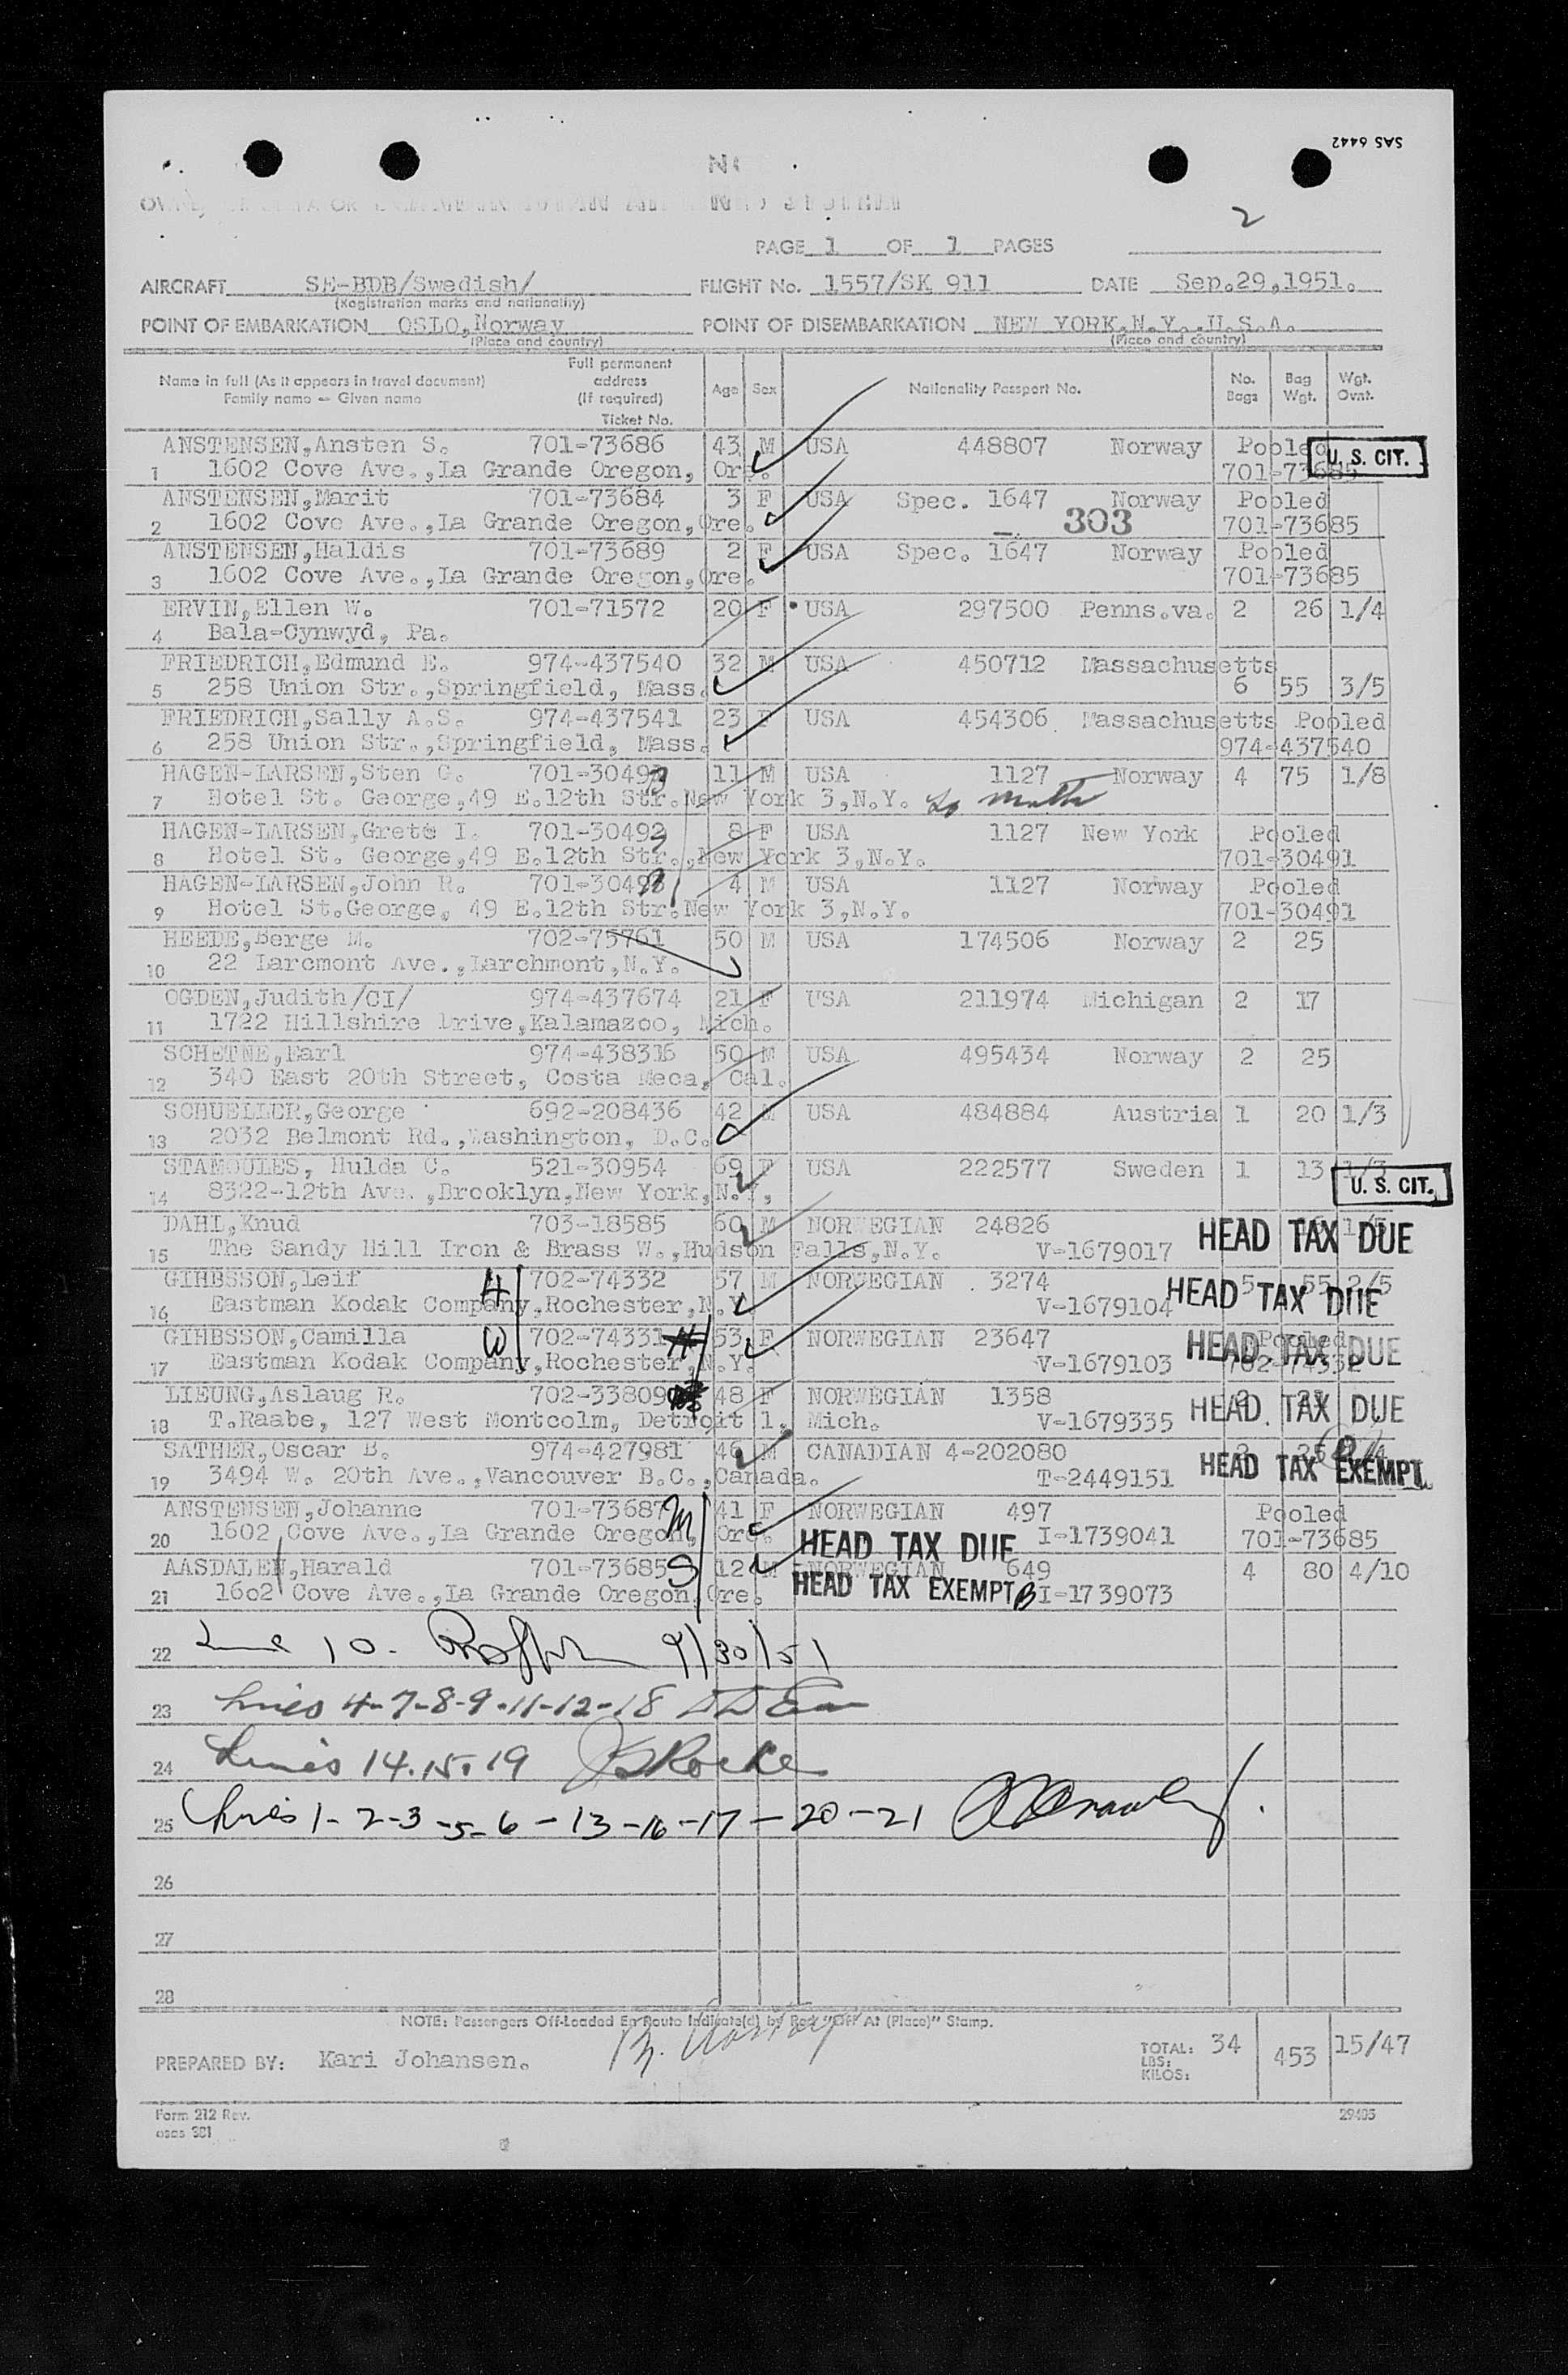 SAS 6442
2
PAGE 1 OF 1 PAGES
AIRCRAFT SE-BDB/Swedish/ FLIGHT No. 1557/SK 911 DATE Sep.29,1951.
(Registration marks and nationality)
POINT OF EMBARKATION OSLO,Norway POINT OF DISEMBARKATION NEW YORK,N.Y.,U.S.A.
(Place and country) (Place and country)
Name in full (As it appears in travel document) Family name — Given name Full permanent address (If required) Ticket No. Age Sex Nationality Passport No. No. Bags Bag Wgt. Wgt. Ovnt.
ANSTENSEN,Ansten S. 701-73686 43 M USA 448807 Norway Pooled
1 1602 Cove Ave.,La Grande Oregon, Ore. 701-73685 U. S. CIT.
ANSTENSEN,Marit 701-73684 3 F USA Spec. 1647 Norway Pooled
2 1602 Cove Ave.,La Grande Oregon,Ore. 303 701-73685
ANSTENSEN,Haldis 701-73689 2 F USA Spec. 1647 Norway Pooled
3 1602 Cove Ave.,La Grande Oregon,Ore. 701-73685
ERVIN,Ellen W. 701-71572 20 F USA 297500 Penns.va. 2 26 1/4
4 Bala-Cynwyd, Pa.
FRIEDRICH,Edmund E. 974-437540 32 M USA 450712 Massachusetts
5 258 Union Str.,Springfield, Mass. 6 55 3/5
FRIEDRICH,Sally A.S. 974-437541 23 F USA 454306 Massachusetts Pooled
6 258 Union Str.,Springfield, Mass. 974-437540
HAGEN-LARSEN,Sten C. 701-3049 11 M USA 1127 Norway 4 75 1/8
7 Hotel St. George,49 E.12th Str.New York 3,N.Y.
HAGEN-LARSEN,Grete I. 701-30492 8 F USA 1127 New York Pooled
8 Hotel St. George,49 E.12th Str.,New York 3,N.Y. 701-30491
HAGEN-LARSEN,John R. 701-30493 4 M USA 1127 Norway Pooled
9 Hotel St.George, 49 E.12th Str.New York 3,N.Y. 701-30491
HEEDE,Berge M. 702-75761 50 M USA 174506 Norway 2 25
10 22 Larcmont Ave.,Larchmont,N.Y.
OGDEN,Judith/CI/ 974-437674 21 F USA 211974 Michigan 2 17
11 1722 Hillshire Drive,Kalamazoo, Mich.
SCHETNE,Earl 974-438316 50 M USA 495434 Norway 2 25
12 340 East 20th Street, Costa Meca, Cal.
SCHUELLER,George 692-208436 42 M USA 484884 Austria 1 20 1/3
13 2032 Belmont Rd.,Washington, D.C.
STAMOULES, Hulda C. 521-30954 69 F USA 222577 Sweden 1 13 1/3
14 8322-12th Ave.,Brooklyn,New York,N.Y, U. S. CIT.
DAHL,Knud 703-18585 60 M NORWEGIAN 24826 HEAD TAX DUE
15 The Sandy Hill Iron & Brass W.,Hudson Falls,N.Y. V-1679017
GIHBSSON,Leif H 702-74332 57 M NORWEGIAN 3274 5 55 2/5
16 Eastman Kodak Company,Rochester,N.Y. V-1679104 HEAD TAX DUE
GIHBSSON,Camilla W 702-74331 53 F NORWEGIAN 23647 Pooled
17 Eastman Kodak Company,Rochester,N.Y. V-1679103 HEAD TAX DUE 702-74332
LIEUNG,Aslaug R. 702-33809 48 F NORWEGIAN 1358
18 T.Raabe, 127 West Montcolm, Detroit 1, Mich. V-1679335 HEAD TAX DUE
SATHER,Oscar B. 974-427981 46 M CANADIAN 4-202080
19 3494 W. 20th Ave.,Vancouver B.C.,Canada. T-2449151 HEAD TAX EXEMPT
ANSTENSEN,Johanne 701-73687 M 41 F NORWEGIAN 497 Pooled
20 1602 Cove Ave.,La Grande Oregon, Ore. HEAD TAX DUE I-1739041 701-73685
AASDALEN,Harald 701-73685 S 12 M NORWEGIAN 649 4 80 4/10
21 16o2 Cove Ave.,La Grande Oregon,Ore. HEAD TAX EXEMPT I-1739073
22 Line 10. 9/30/51
23 Lines 4-7-8-9-11-12-18
24 Lines 14.15.19
25 Lines 1-2-3-5-6-13-16-17-20-21
26
27
28
NOTE: Passengers Off-Loaded En Route Indicate(d) by Red "Off At (Place)" Stamp.
PREPARED BY: Kari Johansen. TOTAL: LBS: KILOS: 34 453 15/47
Form 212 Rev. 29405